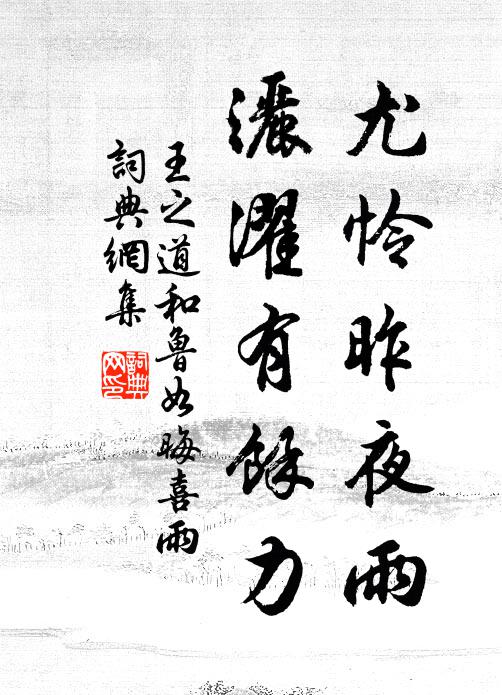 尤怜昨夜雨
灑濯有餘力
王之道和魯如晦喜雨
詞典網集
詞典
网印